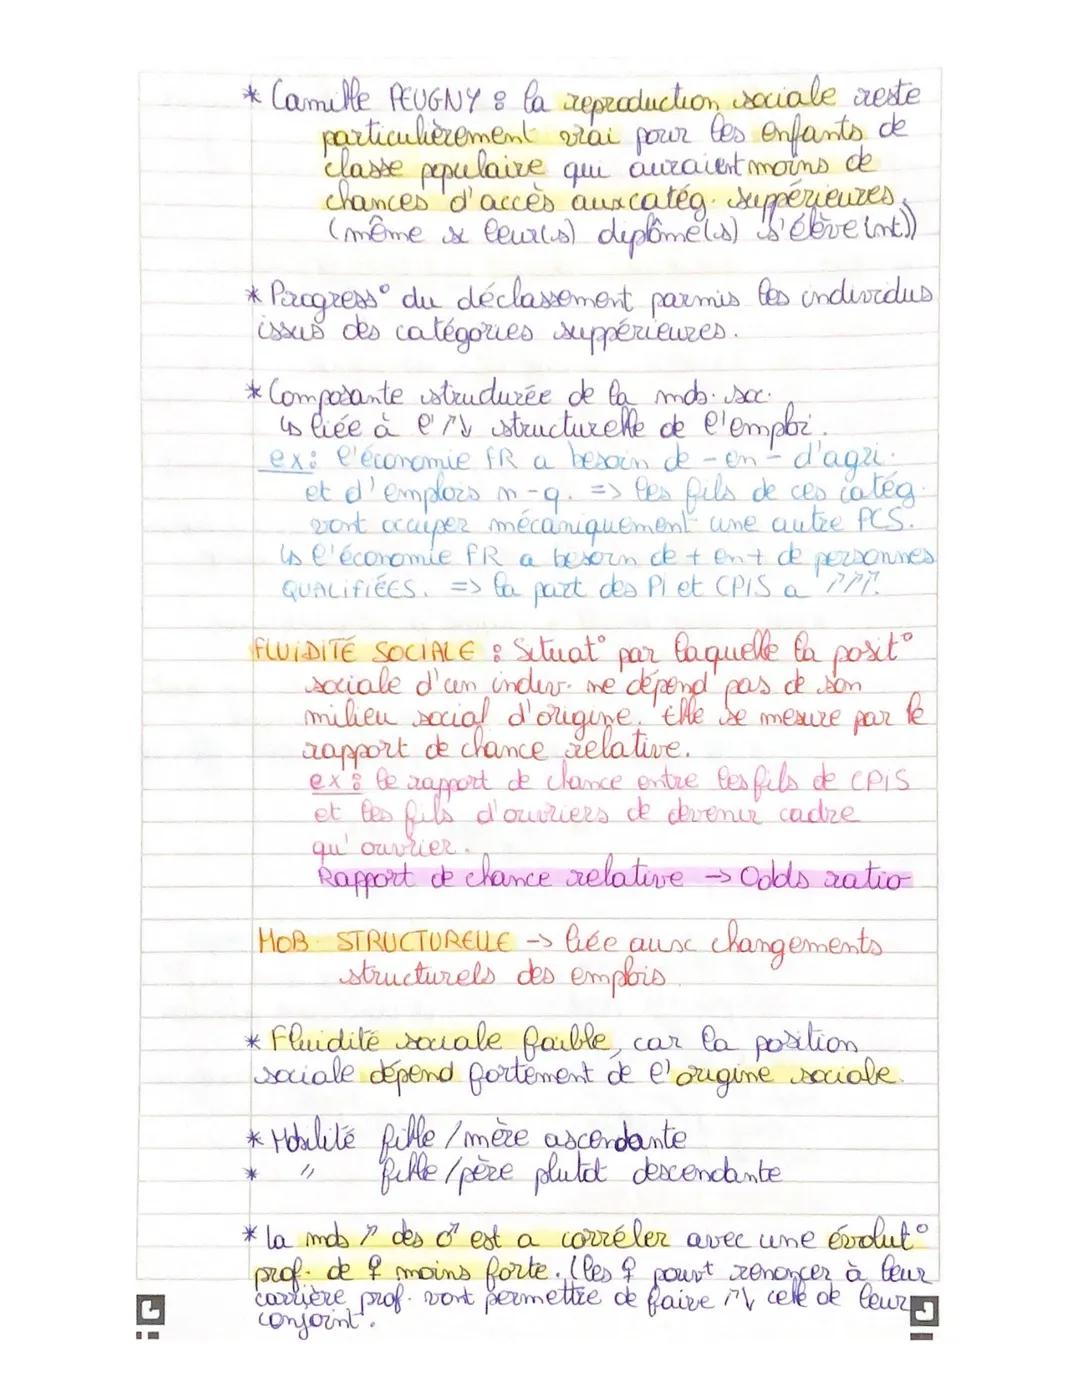 * Camille PEUGNY : la reproduction sociale reste
particulièrement vrai pour les enfants de
classe populaire qui auraient moins de
chances d'accès aux catég. suppérieures.
(même si leur(s) diplôme(s) s'élève(nt))
* Progress° du déclassement parmis les individus
issus des catégories suppérieures.
* Composante structurée de la mob. soc.
↳ liée à l'↗↘ structurelle de l'emploi.
ex: l'économie FR a besoin de - en - d'agri.
et d'emplois n-q. => les fils de ces catég.
vont occuper mécaniquement une autre PCS.
↳ l'économie FR a besoin de + en + de personnes
QUALIFIÉES. => la part des PI et CPIS a ↗↗↗.
FLUIDITÉ SOCIALE : Situat° par laquelle la posit°
sociale d'un indiv. ne dépend pas de son
milieu social d'origine. Elle se mesure par le
rapport de chance relative.
ex : le rapport de chance entre les fils de CPIS
et les fils d'ouvriers de devenir cadre
qu'ouvrier.
Rapport de chance relative → Odds ratio
MOB. STRUCTURELLE → liée aux changements
structurels des emplois.
* Fluidité sociale faible, car la position
sociale dépend fortement de l'origine sociale.
* Mobilité fille/mère ascendante
* " fille/père plutôt descendante
* la mob ↗ des ♂ est a corréler avec une évolut°
prof. de ♀ moins forte. (les ♀ pouvt renoncer à leur
carrière prof. vont permettre de faire ↗↘ celle de leur
conjoint.